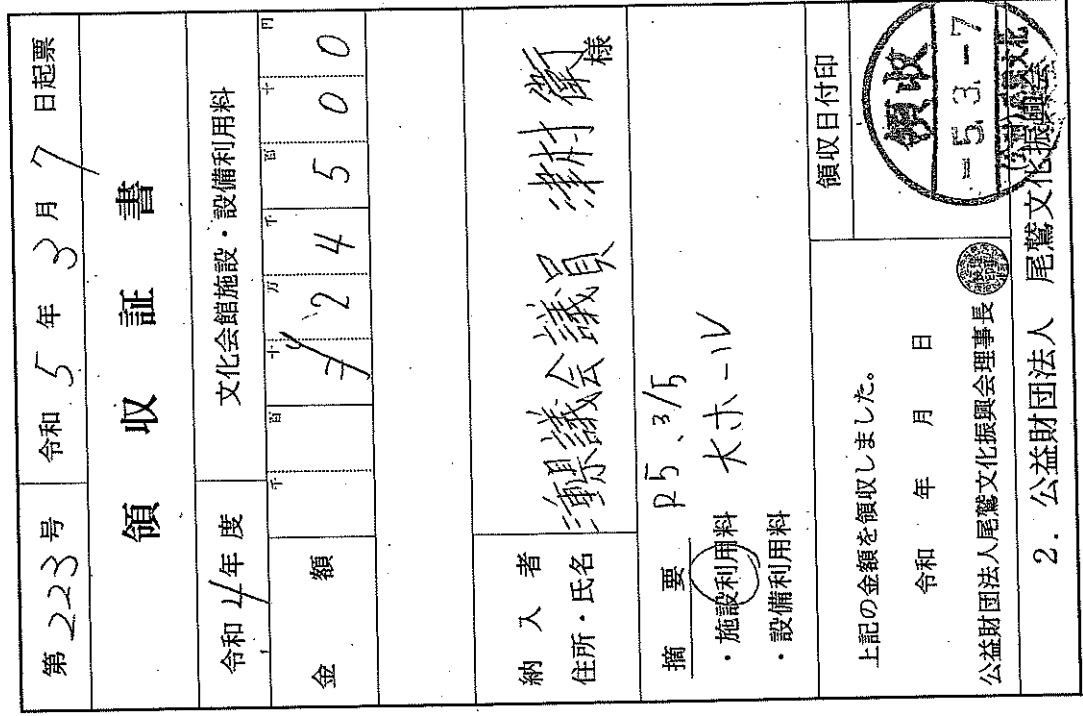 第223号 令和5年3月7日起票
領収証書
令和4年度 文化会館施設・設備利用料
千 百 十 万 千 百 十 円
金額 ¥24500
納入者
住所・氏名
県議会議員 津村衛 様
摘要 R5.3/5
・施設利用料 大ホール
・設備利用料
領収日付印
上記の金額を領収しました。
令和 年 月 日
公益財団法人尾鷲文化振興会理事長
領収
-5.3.-7
2. 公益財団法人 尾鷲文化振興会